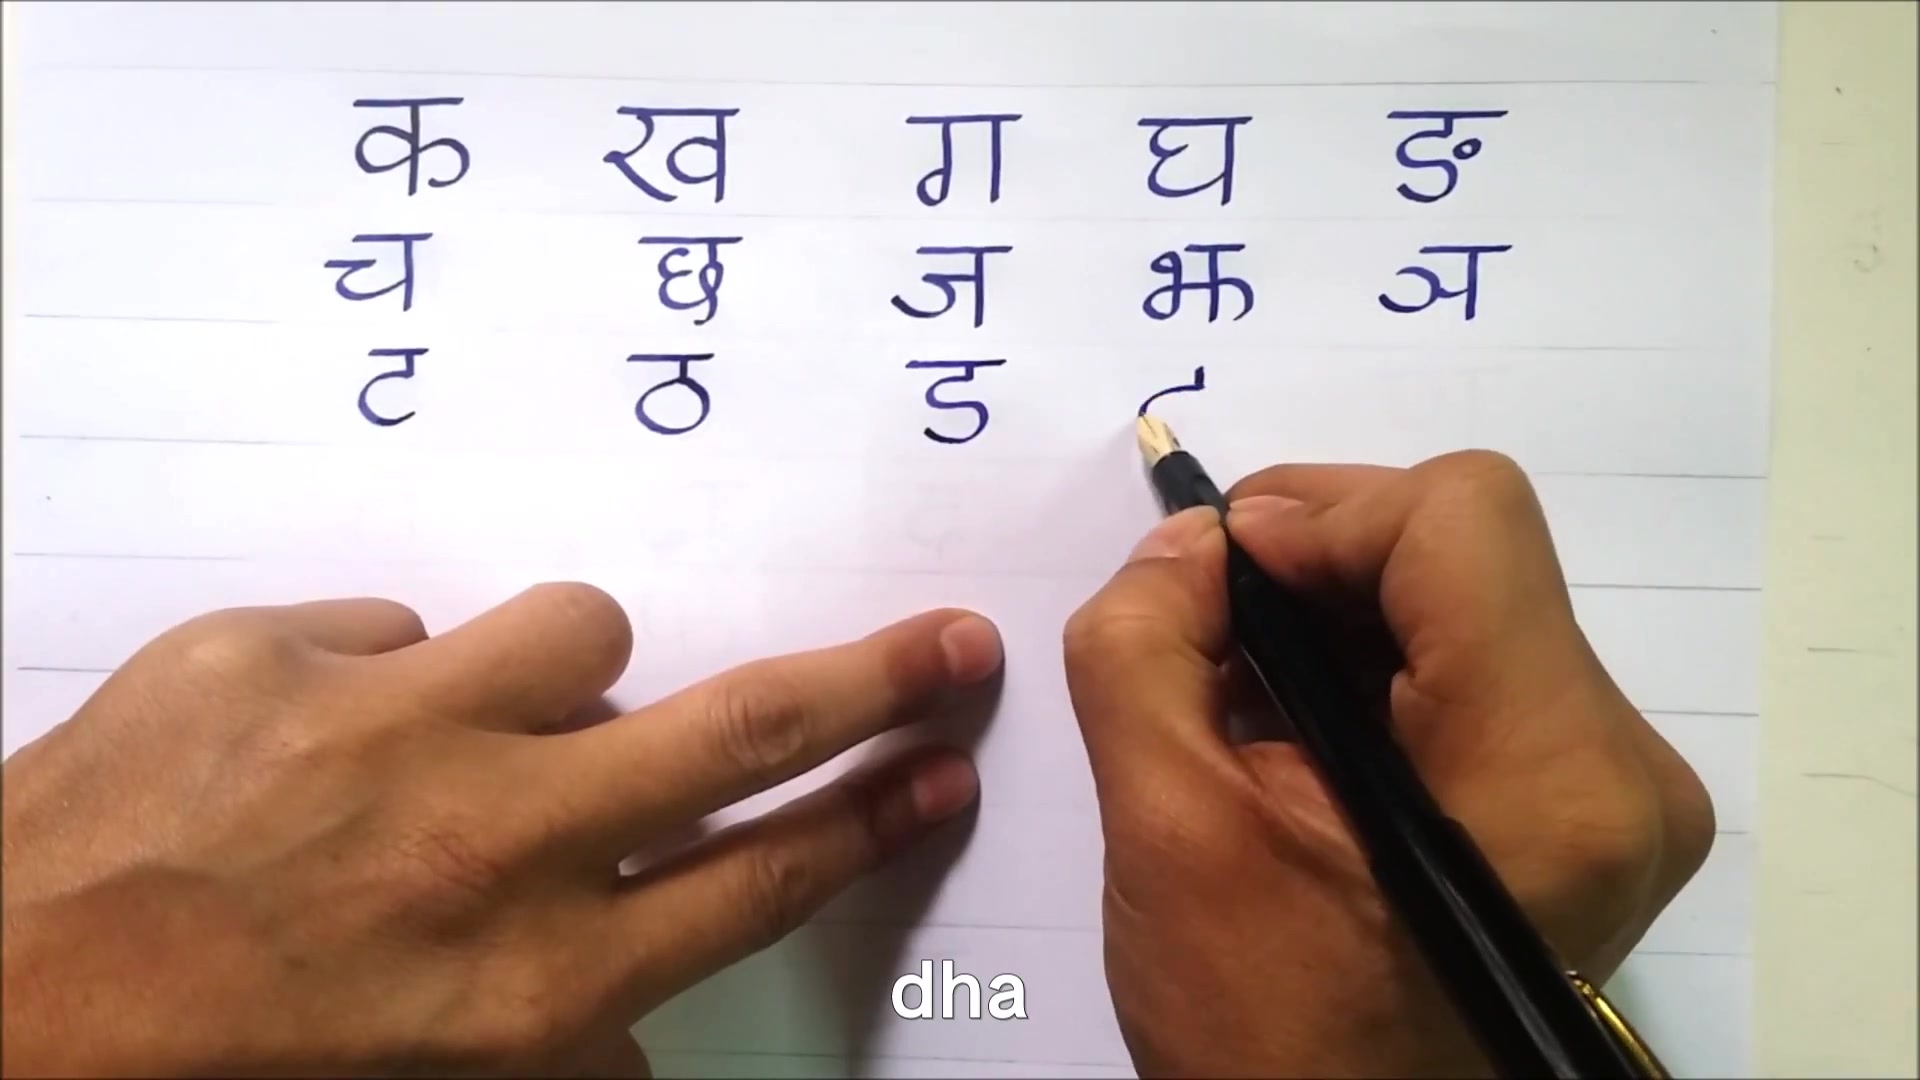 क ख ग घ ङ
च छ ज झ ञ
ट ठ ड
dha